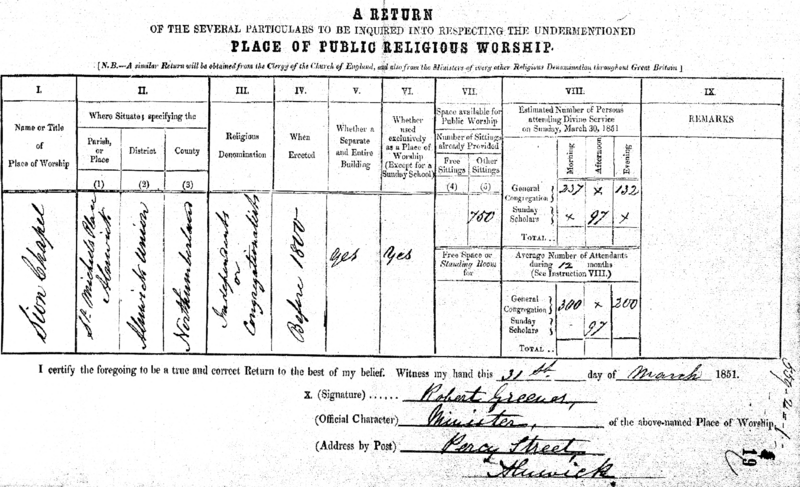 A RETURN
OF THE SEVERAL PARTICULARS TO BE INQUIRED INTO RESPECTING THE UNDERMENTIONED
PLACE OF PUBLIC RELIGIOUS WORSHIP.
[N.B.—A similar Return will be obtained from the Clergy of the Church of England, and also from the Ministers of every other Religious Denomination throughout Great Britain]
I.
Name or Title
of
Place of Worship
Sion Chapel
II.
Where Situate; specifying the
Parish,
or
Place
(1)
District
(2)
County
(3)
St. Michael's Place
Alnwick
Alnwick Union
Northumberland
III.
Religious
Denomination
Independents
or
Congregationalists
IV.
When
Erected
Before 1800
V.
Whether a
Separate
and Entire
Building
Yes
VI.
Whether
used
exclusively
as a Place of
Worship
(Except for a
Sunday School)
Yes
VII.
Space available for
Public Worship
Number of Sittings
already Provided
Free
Sittings
(4)
Other
Sittings
(5)
750
Free Space or
Standing Room
for
VIII.
Estimated Number of Persons
attending Divine Service
on Sunday, March 30, 1851
Morning Afternoon Evening
General
Congregation } 237 × 132
Sunday
Scholars } × 97 ×
TOTAL..
Average Number of Attendants
during 12 months
(See Instruction VIII.)
General
Congregation } 300 × 200
Sunday
Scholars } 97
TOTAL..
IX.
REMARKS
I certify the foregoing to be a true and correct Return to the best of my belief. Witness my hand this 31st. day of March 1851.
X. (Signature)...... Robert Greener,
(Official Character) Minister, of the above-named Place of Worship.
(Address by Post) Percy Street,
Alnwick
19